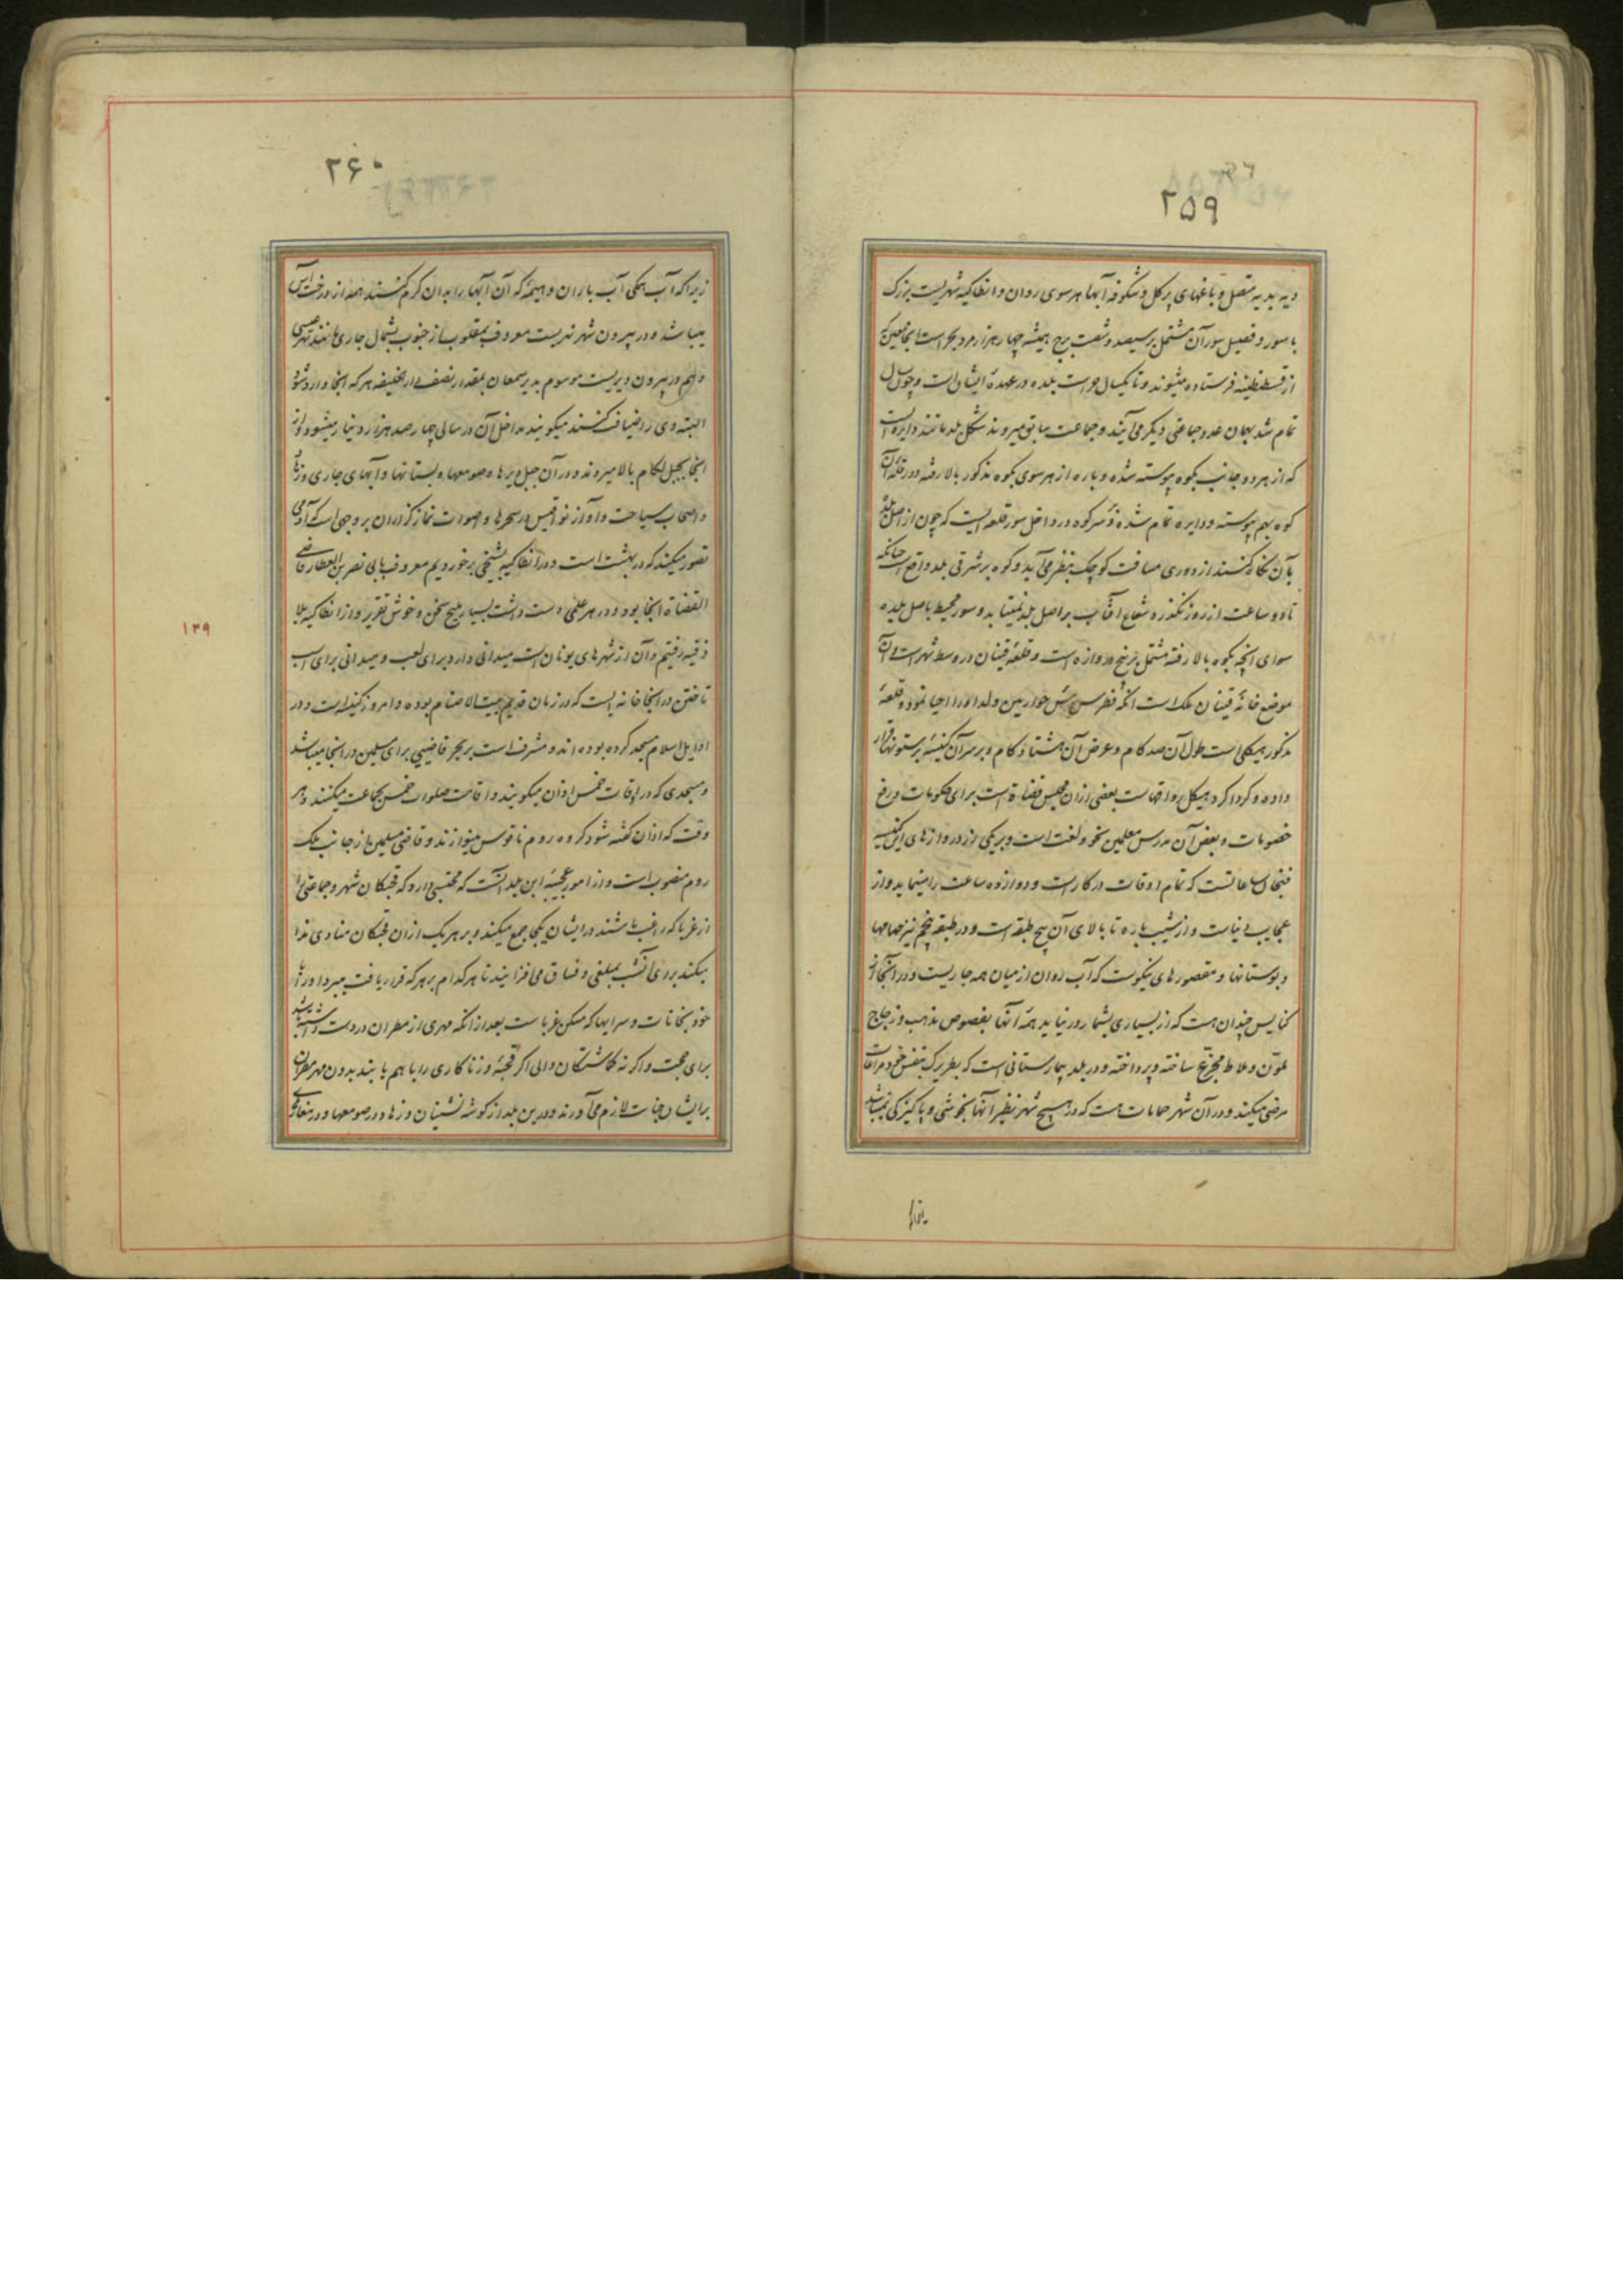 ۲۵۹
دیه بدیه متصل و باغهای پر گل و شگوفه آبها هر سوی روان و انطاکیه شهریست بزرک
با سور و فصیل سور آن مشتمل بر سیصد و شصت برج همیشه چهار هزار مرد
از قسطنطنیه فرستاده میشوند و تا یکسال حراست بلده در عهدهٔ ایشان است و چون سال
تمام شد بهمان عدد جماعتی دیکر می آیند و جماعت سابق میروند شکل بلد مانند دایره است
که از هر دو جانب بکوه پیوسته شده و باره از هر سوی بکوه مذکور بالا رفته و در قلهٔ آن
کوه بهم پیوسته و دایره تمام شده و سر کوه در داخل سور قلعه ایست که چون از اصل بلد
بآن نکاه کنند از دوری مسافت کوچک بنظر می آید و کوه بر شرقی بلد واقع است چنانکه
تا دو ساعت از روز نکذرد شعاع آفتاب بر اصل بلد نمیتابد و سور محیط باصل بلده
سوای آنچه بکوه بالا رفته مشتمل بر پنج دروازه است و قلعهٔ قیسان در وسط شهر است و آن
موضع خانهٔ قیسان ملک است آنکه فطرس رئیس حواریین ولد او را احیا نمود و قلعهٔ
مذکور هیکلی است طول آن صد کام و عرض آن هشتاد کام و بر سر آن کنیسهٔ بر ستونها قرار
داده و کرداکرد هیکل رواقهاست بعضی از آن مجلس قضاة است برای حکومات و رفع
خصومات و بعض آن مدرس معلمین نحو و لغت است و بر یکی از دروازهای این کنیسه
فنجان ساعاتست که تمام اوقات در کار است و دوازده ساعت را مینماید و از
عجایب دنیاست و از نشیب باره تا بالای آن پنج طبقه است و در طبقه پنجم نیز حمامها
و بوستانها و مقصورهای نیکوست که آب روان از میان همه جاریست و در آنجا از
کنایس چندان هست که از بسیاری بشمار در نیاید همهٔ آنها بفصوص مذهب و زجاج
ملون و بلاط مجزع ساخته و پرداخته و در بلد بیمارستانی است که بطریرک بنفس خود مراعات
مرضی میکند و در آن شهر حمامات هست که در هیچ شهر نظیر آنها بخوشی و پاکیزکی نمیباشد
زیرا
۲۶۰
زیرا که آب همکی آب باران و هیمهٔ که آن آبها را بدان کرم کنند همه از درخت آس
میباشد و در بیرون شهر نهریست معروف بمقلوب از جنوب بشمال جاری مانند نهر عیسی
و هم در بیرون دیریست موسوم بدیر سمعان بمقدار نصف دار الخلیفه هر که آنجا وارد شود
البته وی را ضیافت کنند میکویند مداخل آن در سالی چهار صد هزار دینار میشود و از
آنجا بجبل لکام بالا میروند و در آن جبل دیرها و صومعها و بستانها و آبهای جاری و زهاد
و اصحاب سیاحت و آواز نواقیس در سحرها و اصوات نماز گزاران بر وجهی است که آدمی
تصور میکند که در بهشت است و در انطاکیه بشیخی برخوردیم معروف بابی نصر بن العطار قاضی
القضاة آنجا بود و در هر علمی دست داشت بسیار ملیح سخن و خوش تقریر و از انطاکیه بلا
ذقیه رفتیم و آن از شهرهای یونان است میدانی دارد برای لعب و میدانی برای اسب
تاختن در آنجا خانه ایست که در زمان قدیم بیت الاصنام بوده و امروز کنیسه است و در
اوایل اسلام مسجد کرده بوده اند و مشرف است بر بحر قاضیی برای مسلمین در آنجا میباشد
و مسجدی که در اوقات خمس اذان میکویند و اقامت صلوات خمس بجماعت میکنند و هر
وقت که اذان کفته شود کروه روم ناقوس مینوازند و قاضی مسلمین از جانب ملک
روم منصوب است و از امور عجیبهٔ این بلد آنست که محتسبی دارد که قحبکان شهر و جماعتی را
از غربا که راغب باشند در ایشان یکجا جمع میکند و بر هر یک از آن قحبکان منادی ندا
میکند برای آن شب بمبلغی و فساق می افزایند تا هر کدام بر هر که قرار یافت میبرد او را با
خود بخانات و سرایها که مسکن غرباست بعد از آنکه مهری از مطران در دست داشته باشد
برای حجت و اکر نه کماشتکان والی اکر قحبهٔ و زناکاری را با هم یابند بدون مهر مطران
بر ایشان جنایت لازم می آورند و درین بلد از کوشه نشینان و زهاد در صومعها و در مغارهای
۱۲۹